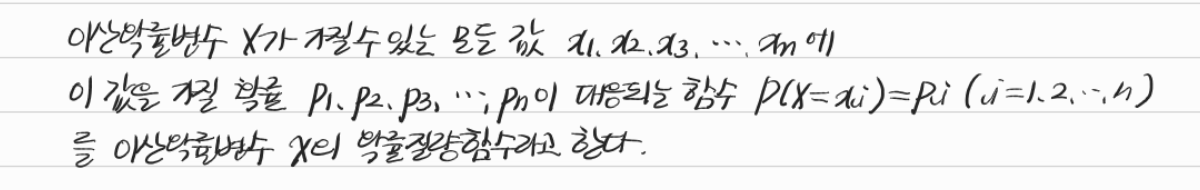 이산확률변수 X가 가질수 있는 모든 값 x1, x2, x3, ⋯, xn에
이 값을 가질 확률 p1, p2, p3, ⋯, pn이 대응되는 함수 P(X=xi)=pi (i=1, 2, ⋯, n)
를 이산확률변수 X의 확률질량함수라고 한다.